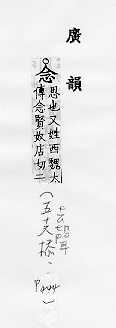 廣韻
念
思也又姓西魏太
傅念賢奴店切二
（五十六㮇